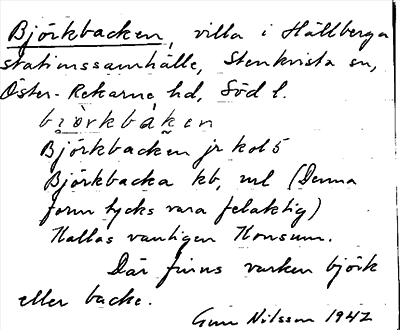 Björkbacken, villa i Hällberga
stationssamhälle, Stenkvista sn,
Öster-Rekarne hd, Söd l.
björkbaken
Björkbacken jr kol 5
Björkbacka kb, ml (Denna
form tycks vara felaktig)
Kallas vanligen Konsum.
Där finns varken björk
eller backe.
Gun Nilsson 1942